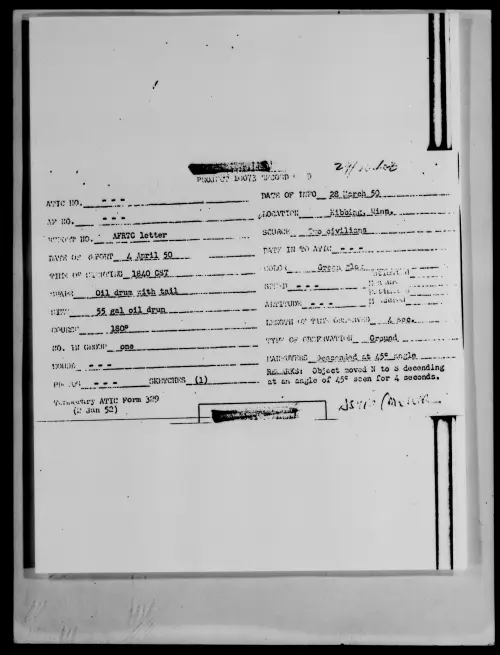 PROJECT 10073 RECORD
ATIC NO. - - -
DATE OF INFO 28 March 50
AF NO. - - -
LOCATION Hibbing, Minn.
REPORT NO. AFRTC letter
SOURCE Two civilians
DATE OF REPORT 4 April 50
DATE IN TO ATIC - - -
TIME OF SIGHTING 1840 CST
COLOR Green
SHAPE Oil drum with tail
SPEED - - -
SIZE 55 gal oil drum
ALTITUDE - - -
COURSE 180°
LENGTH OF TIME OBSERVED 4 sec.
NO. IN GROUP one
TYPE OF OBSERVATION Ground
SOUND - - -
MANEUVERS Descended at 45° angle
PHOTOS - - - SKETCHES (1)
REMARKS: Object moved N to S decending
at an angle of 45° seen for 4 seconds.
Temporary ATIC Form 329
(2 Jan 52)